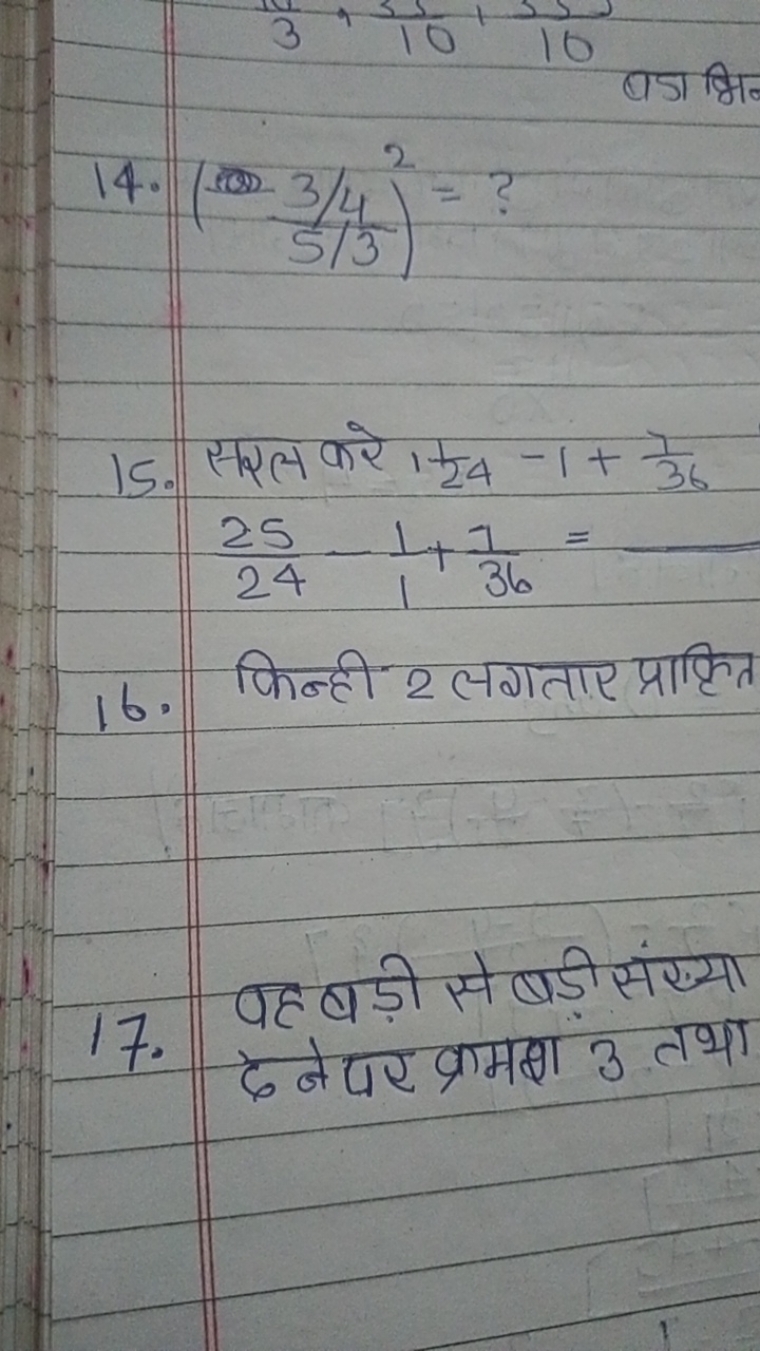 3 , 10 , 10
बडा भिन
14. ( 3/4 / 5/3 )² = ?
15. सरल करे 1 1/24 - 1 + 7/36
25/24 - 1/1 + 7/36 = ____
16. किन्ही 2 लगतार प्राकृित
17. वह बड़ी से बड़ी संख्या
देने पर क्रमश 3 तथा